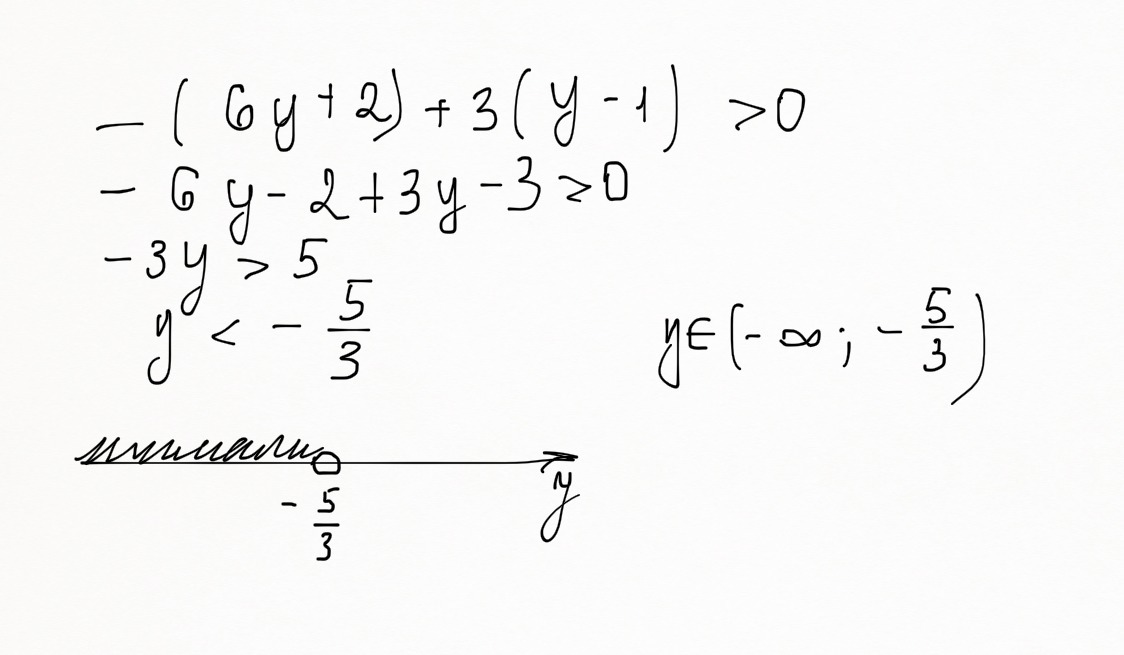 - (6y+2)+3(y-1) >0
- 6y-2+3y-3>0
-3y > 5
y < - 5/3
y∈(-∞; - 5/3)
- 5/3
y